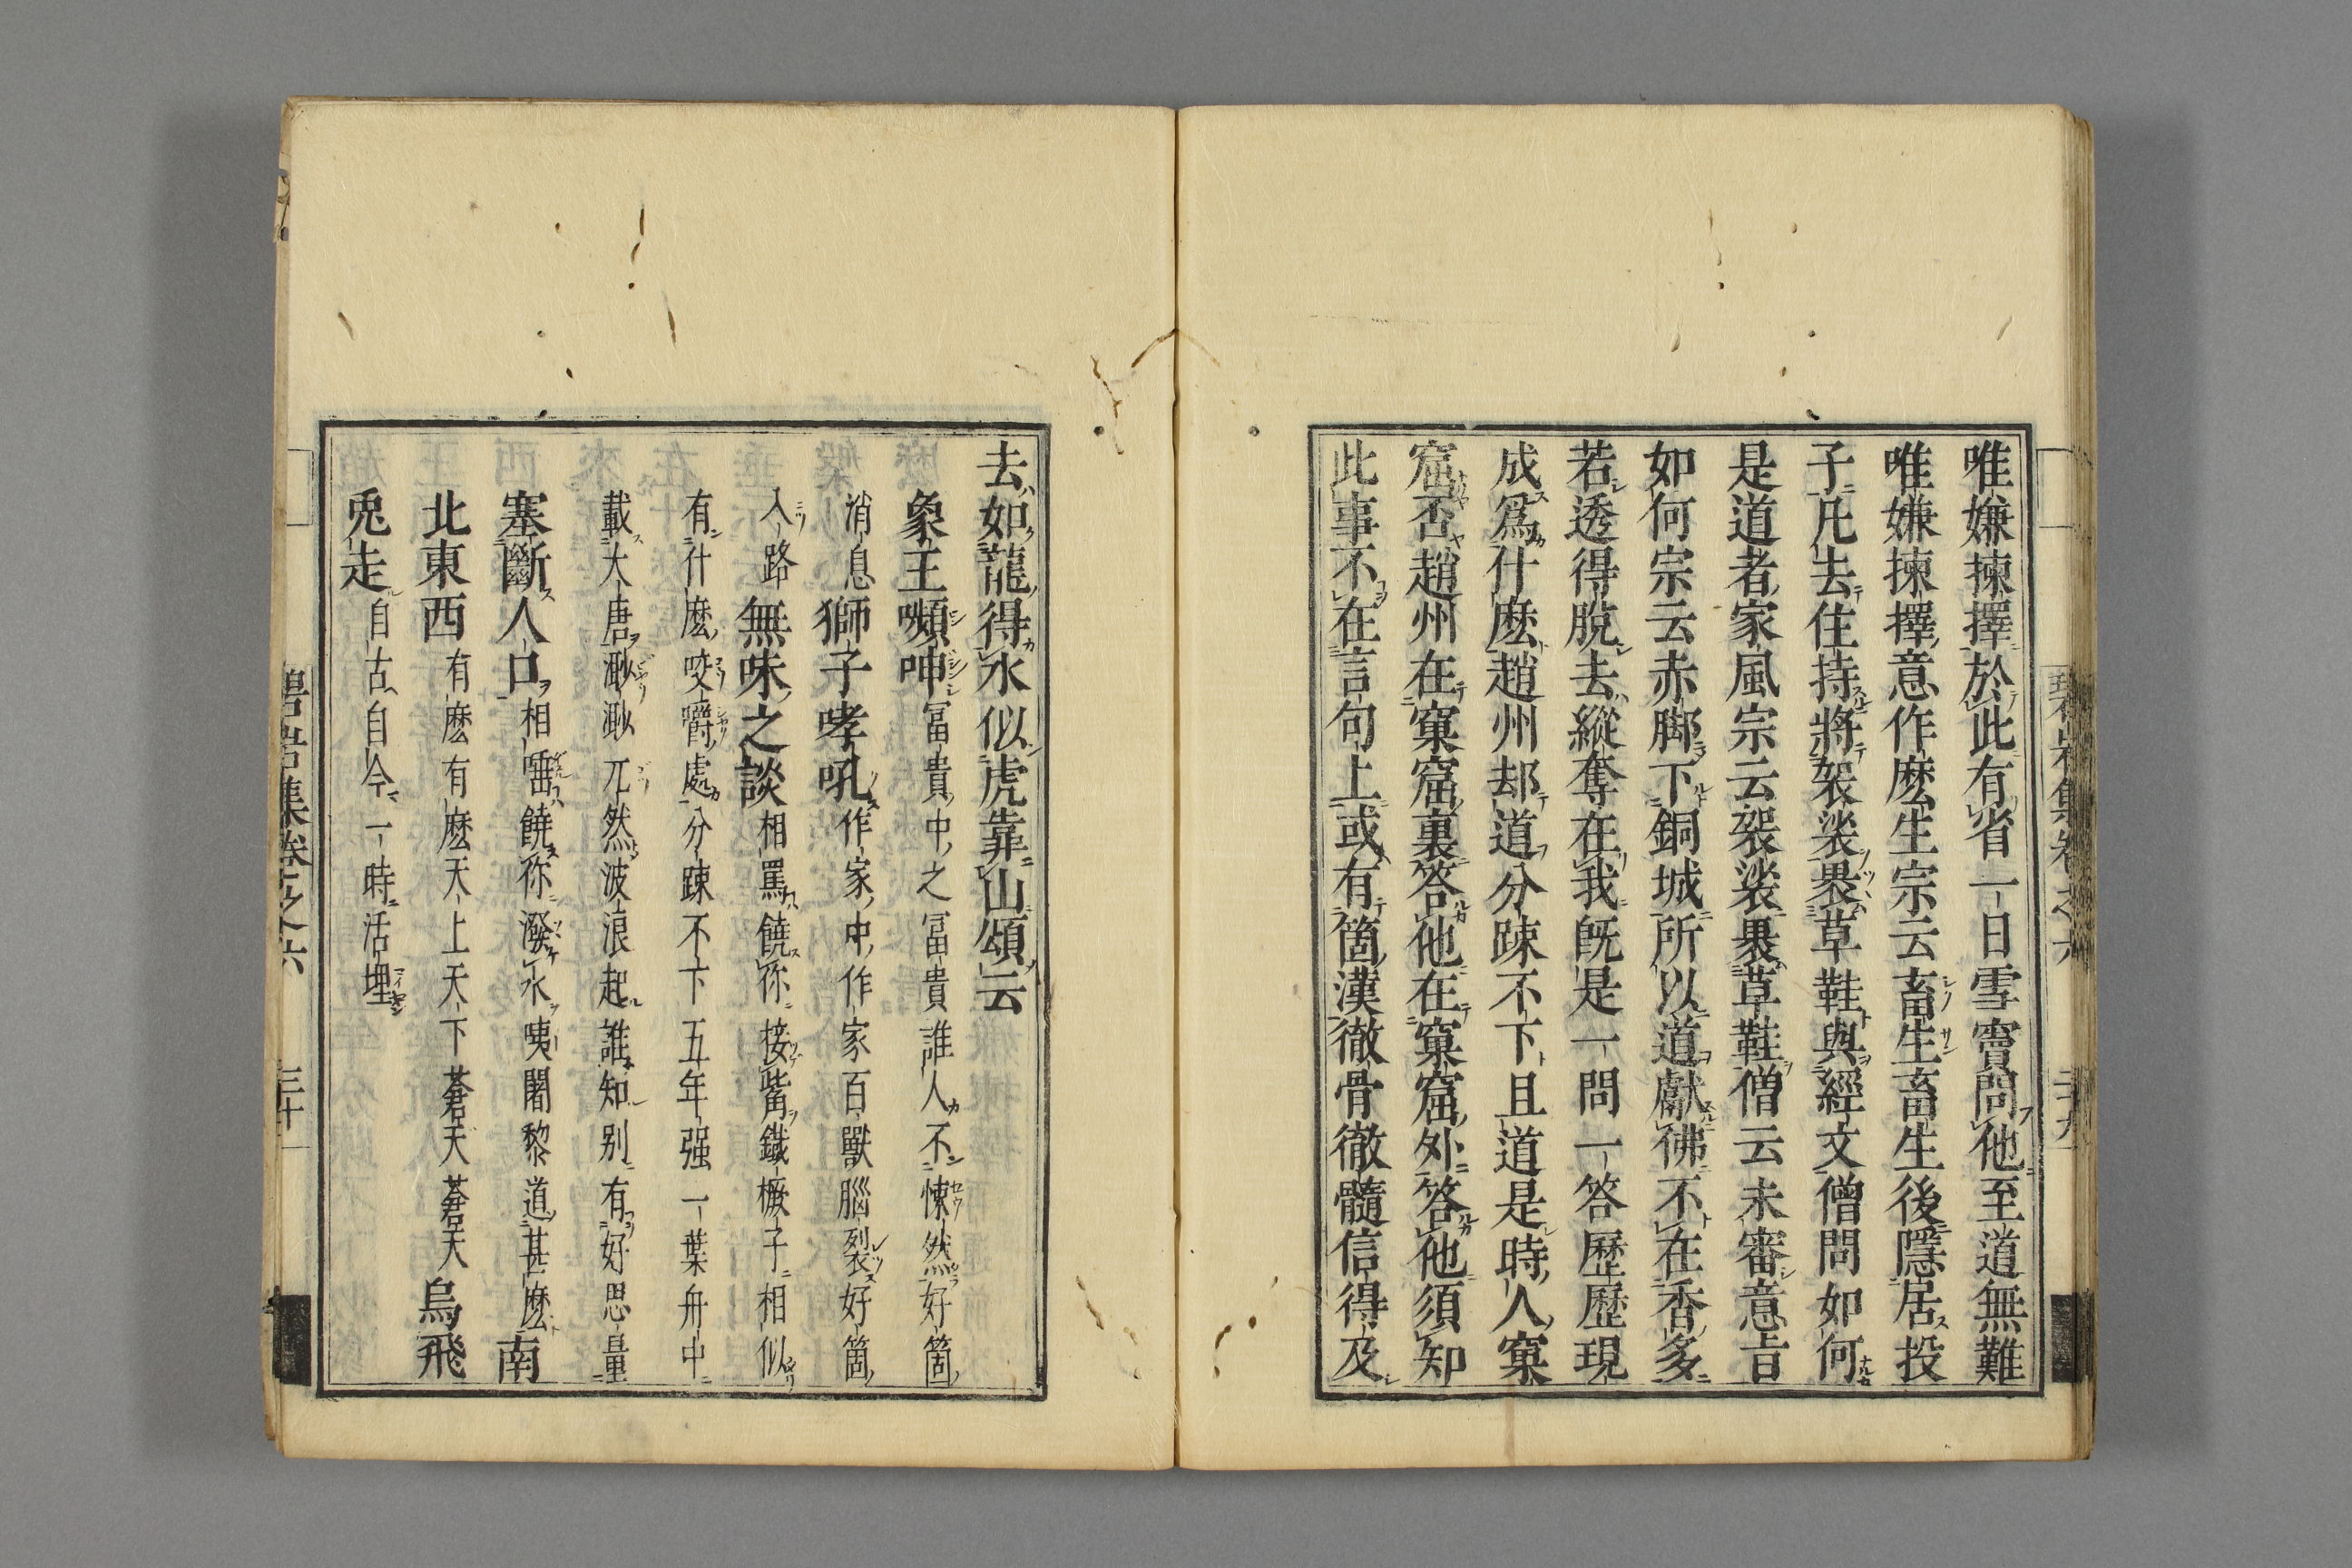 唯嫌揀擇於此有省一日雪竇問他至道無難
唯嫌揀擇意作麽生宗云畜生畜生後隱居投
子凡去住持將袈裟裹草鞋與經文僧問如何
是道者家風宗云袈裟裹草鞋僧云未審意旨
如何宗云赤脚下銅城所以道獻佛不在香多
若透得脫去縱奪在我旣是一問一答歷歷現
成爲什麽趙州却道分疎不下且道是時人窠
窟否趙州在窠窟裏答他在窠窟外答他須知
此事不在言句上或有箇漢徹骨徹髓信得及
去如龍得水似虎靠山頌云
象王嚬呻富貴中之富貴誰人不悚然好箇
消息獅子哮吼作家中作家百獸腦裂好箇
入路無味之談相罵饒你接觜鐵橛子相似
有什麽咬嚼處分疎不下五年强一葉舟中
載大唐渺渺兀然波浪起誰知別有好思量
塞斷人口相唾饒你潑水咦闍黎道甚麽南
北東西有麽有麽天上天下蒼天蒼天烏飛
兎走自古自今一時活埋
碧岩集卷之六 三十